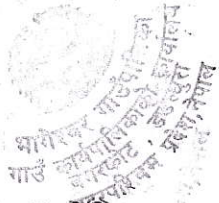 भागेश्वर गाउँपालिका
गाउँ कार्यपालिकाको कार्यालय
बगरकोट, डडेल्धुरा
प्रदेश, नेपाल